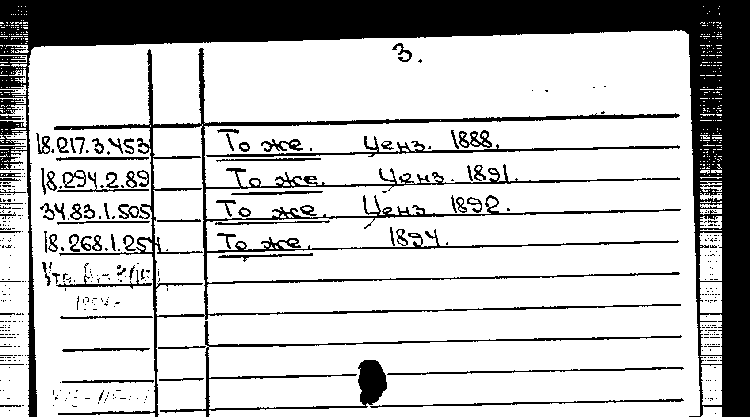 3.
18.217.3.453 То же. Ценз. 1888.
18.294.2.89 То же. Ценз. 1891.
34.83.1.505 То же. Ценз. 1892.
18.268.1.254. То же. 1894.